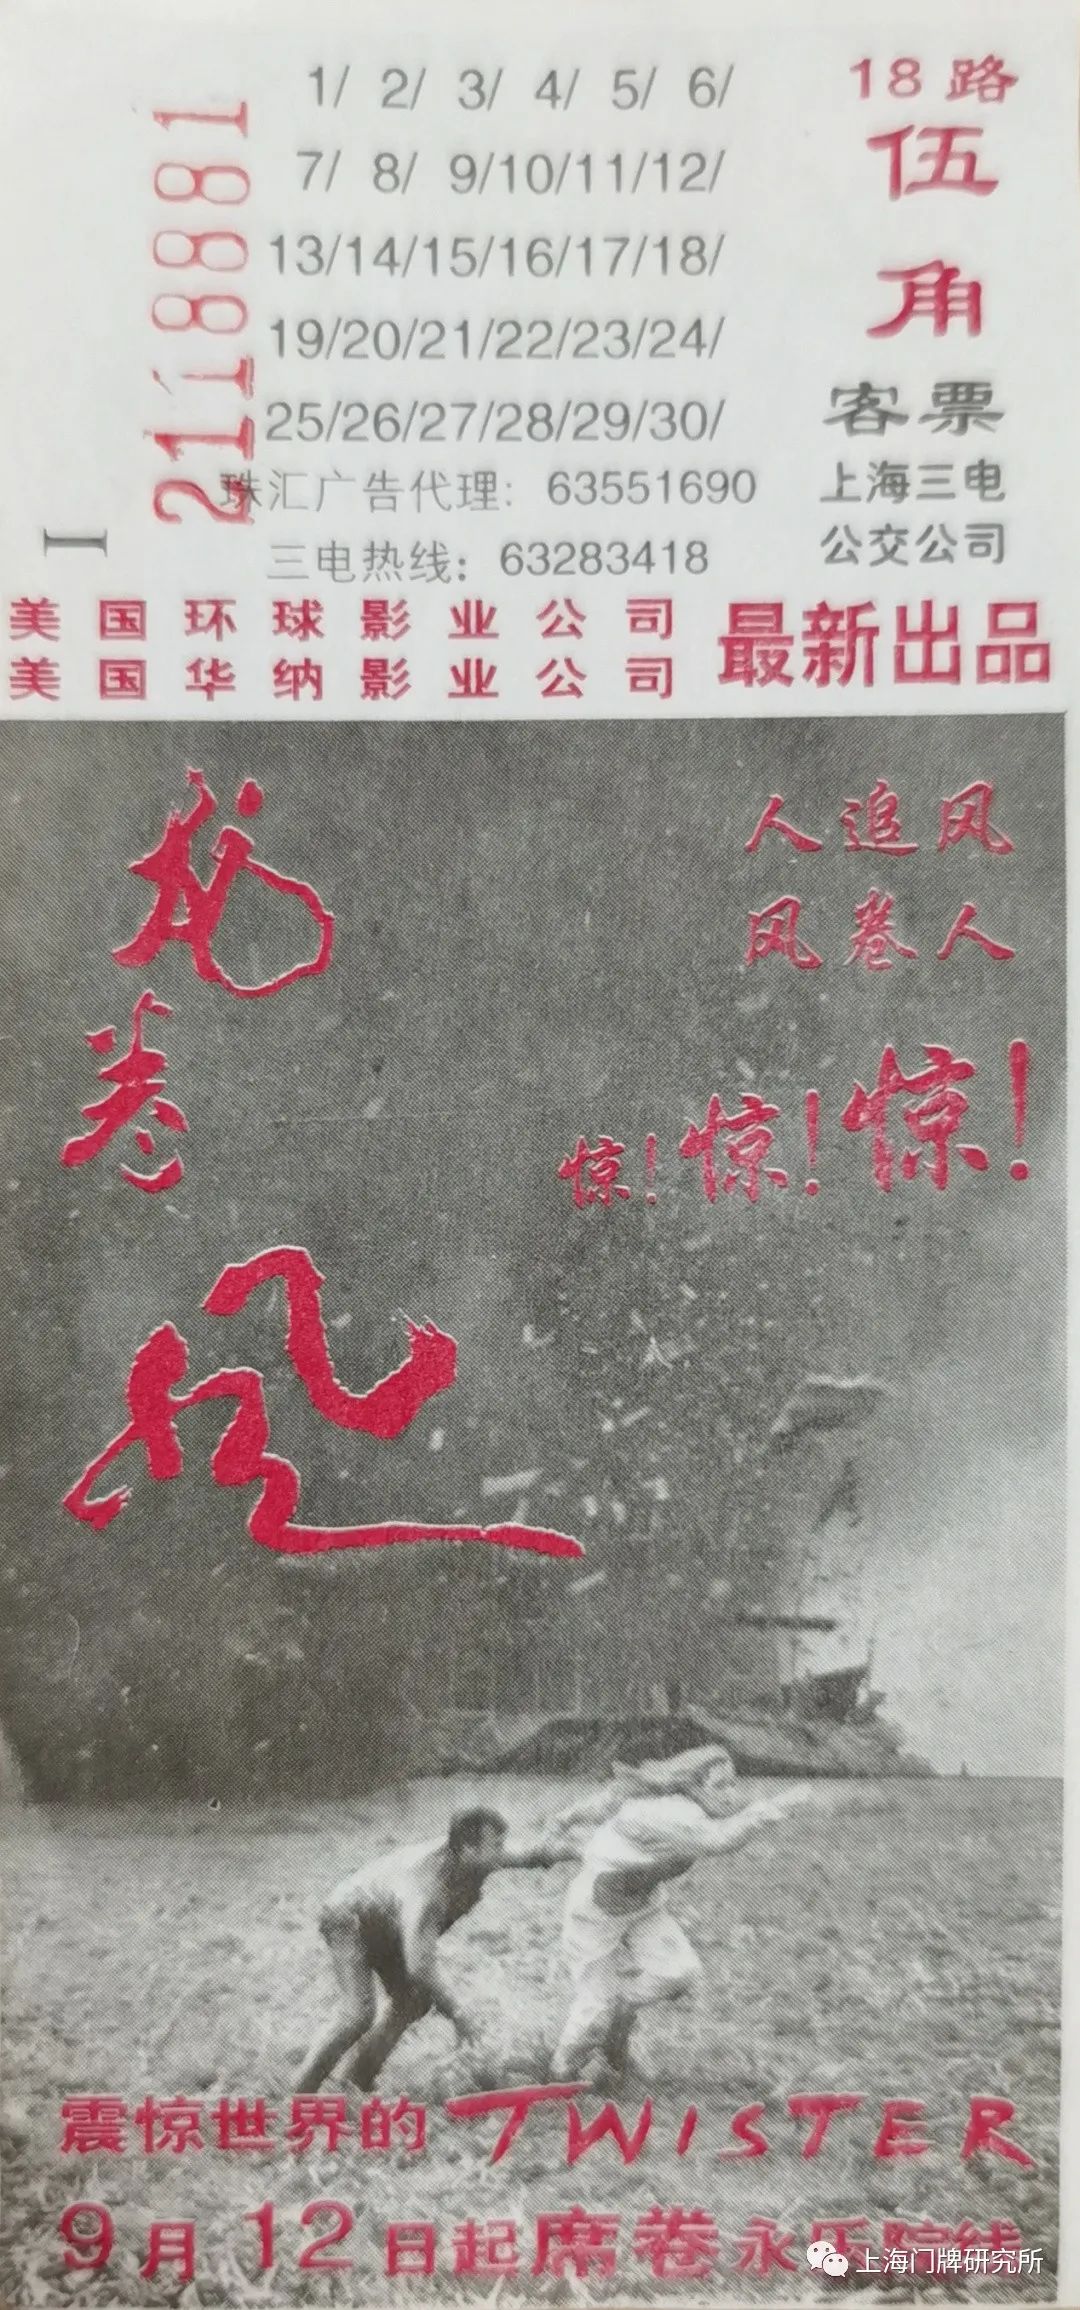 1/ 2/ 3/ 4/ 5/ 6/
7/ 8/ 9/10/11/12/
13/14/15/16/17/18/
19/20/21/22/23/24/
25/26/27/28/29/30/
2118881
珠汇广告代理: 63551690
三电热线: 63283418
I
18 路
伍
角
客票
上海三电
公交公司
美国环球影业公司
美国华纳影业公司
最新出品
龙
卷
风
人追风
风卷人
惊!惊!惊!
震惊世界的 TWISTER
9月12日起席卷永乐院线
上海门牌研究所